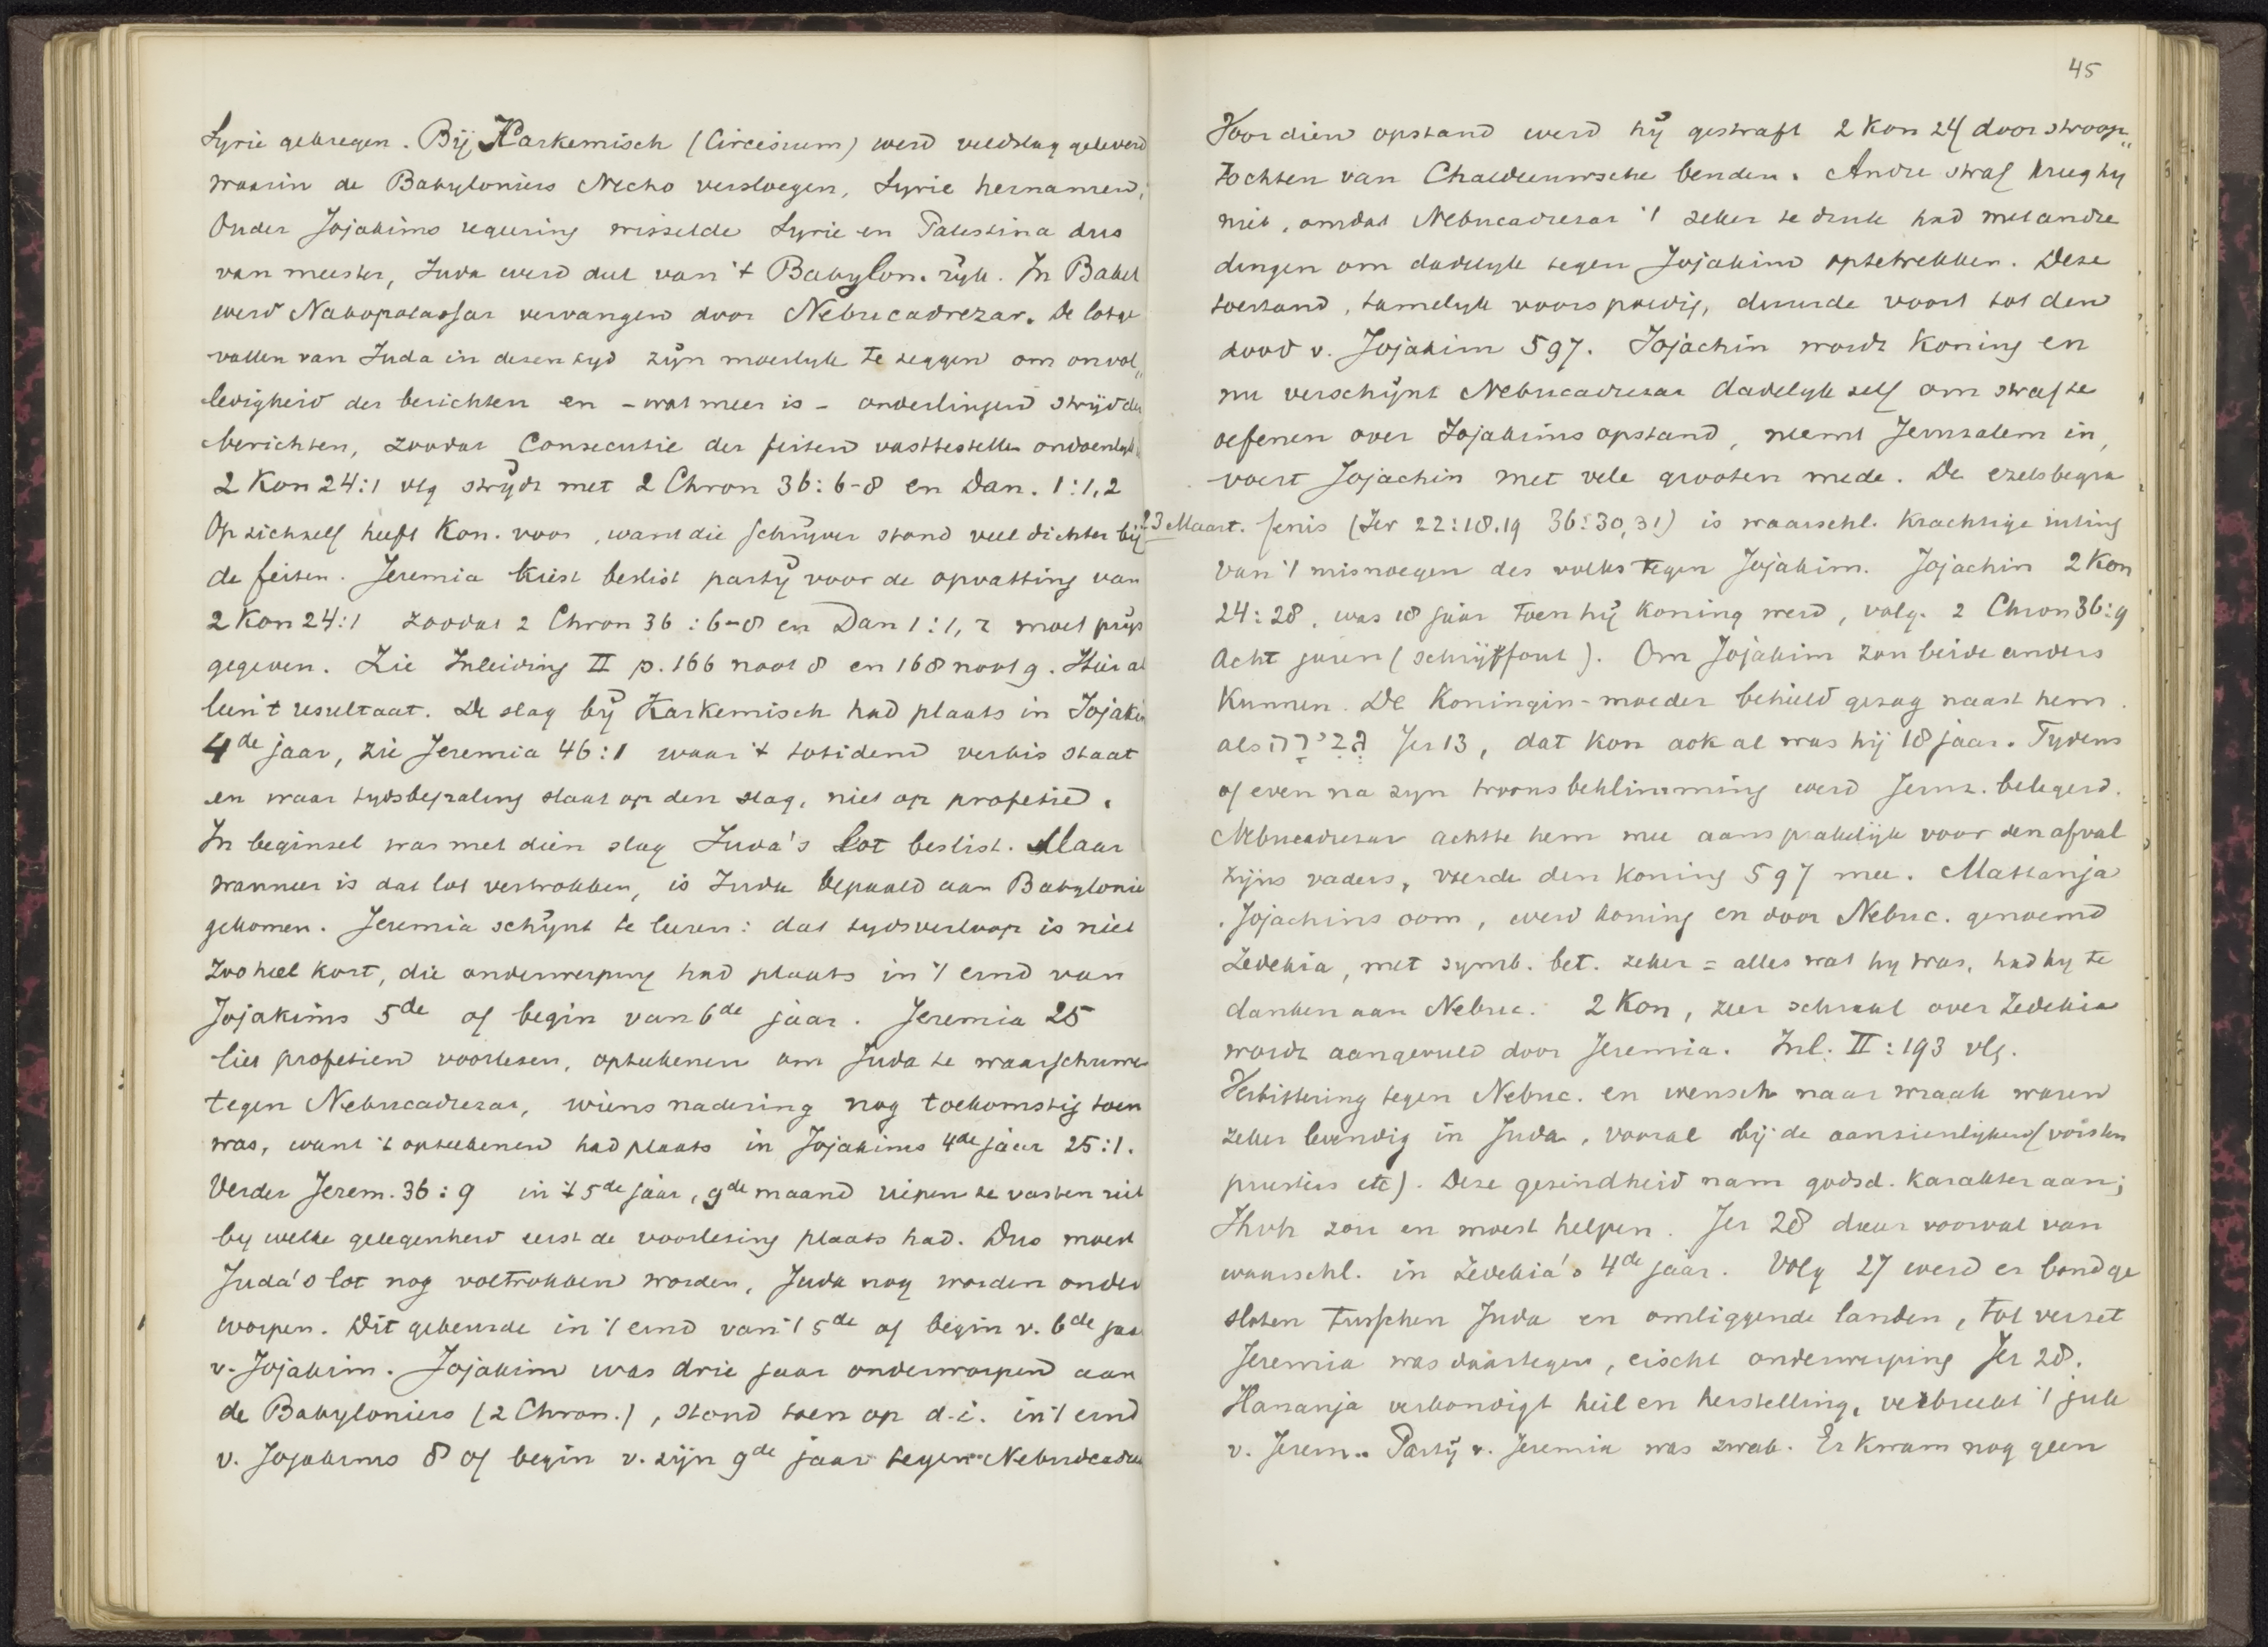 Syrie gekregen. Bij Karkemisch (Circesium) werd veldslag geleverd
waarin de Babyloniers Necho versloegen, Syrie hernamen,
Onder Jojakims regeering wisselde Syrie en Palestina dus
van meester, Juda werd deel van 't Babylon. rijk. In Babel
werd Nabopalassar vervangen door Nebucadrezar. De lotge
vallen van Juda in dezen tyd zijn moeilyk te zeggen om onvol„
ledigheid der berichten en - wat meer is - onderlingen strijd der
berichten, zoodat Consecutie der feiten vasttestellen ondoenlyk is
2 Kon 24:1 vlg strijdt met 2 Chron 36:6-8 en Dan. 1:1,2
Op zichzelf heeft Kon. voor, want die schrijver stond veel dichter bij
de feiten. Jeremia kiest beslist partij voor de opvatting van
2 Kon 24:1 zoodat 2 Chron 36:6-8 en Dan 1:1,2 moet prijs
gegeven. Zie Inleiding II p. 166 noot 8 en 168 noot 9. Hier al
leen 't resultaat. De slag bij Karkemisch had plaats in Jojakims
4de jaar, zie Jeremia 46:1 waar 't totidem verbis staat
en waar tydsbepaling slaat op den slag, niet op profetie.
In beginsel was met dien slag Juda's lot beslist. Maar
wanneer is dat lot vertrokken, is Juda bepaald aan Babylonie
gekomen. Jeremia schijnt te leeren: dat tydsverloop is niet
zoo heel kort, die onderwerping had plaats in 't eind van
Jojakims 5de of begin van 6de jaar. Jeremia 25
liet profetien voorlezen, opteekenen om Juda te waarschuwen
tegen Nebucadrezar, wiens nadering nog toekomstig toen
was, want 't opteekenen had plaats in Jojakims 4de jaar 25:1.
Verder Jerem. 36:9 in 't 5de jaar, 9de maand riepen ze vasten uit
by welke gelegenheid eerst de voorlezing plaats had. Dus moest
Juda's lot nog voltrokken worden, Juda nog worden onder
worpen. Dit gebeurde in 't eind van 't 5de of begin v. 6de jaar
v. Jojakim. Jojakim was drie jaar onderworpen aan
de Babyloniers (2 Chron.), stond toen op d.i. in 't eind
v. Jojakims 8 of begin v. zijn 9de jaar tegen Nebucadre
45
Voor dien opstand werd hij gestraft 2 Kon 24 door stroop„
tochten van Chaldeeuwsche benden. Andre straf kreeg hy
niet, omdat Nebucadrezar 't zeker te druk had met andre
dingen om dadelyk tegen Jojakim optetrekken. Deze
toestand, tamelyk voorspoedig, duurde voort tot den
dood v. Jojakim 597. Jojachin wordt Koning en
nu verschijnt Nebucadrezar dadelyk zelf om straf te
oefenen over Jojakims opstand, neemt Jeruzalem in,
voert Jojachin met vele grooten mede. De ezelsbegra
23 Maart. fenis (Jer 22:18.19 36:30,31) is waarschl. krachtige uiting
van 't misnoegen des volks tegen Jojakim. Jojachin 2 Kon
24:28, was 18 jaar toen hij koning werd, volg. 2 Chron 36:9
acht jaren (schrijffout). Om Jojakim zou beide anders
kunnen. De Koningin-moeder behield gezag naast hem.
als גבירה Jer 13, dat kon ook al was hij 18 jaar. Tydens
of even na zyn troonsbeklimming werd Jeruz. belegerd.
Nebucadrezar achtte hem mee aansprakelijk voor den afval
zijns vaders, voerde den koning 597 mee. Mattanja
Jojachins oom, werd koning en door Nebuc. genoemd
Zedekia, met symb. bet. zeker = alles wat hy was, had hy te
danken aan Nebuc. 2 Kon, zeer schraal over Zedekia
wordt aangevuld door Jeremia. Inl. II:193 vlg.
Verbittering tegen Nebuc. en wensch naar wraak waren
zeker levendig in Juda, vooral bij de aanzienlijken (vorsten
priesters etc). Deze gezindheid nam godsd. karakter aan;
Jhvh zou en moest helpen. Jer 28 daar voorval van
waarschl. in Zedekia's 4de jaar. Volg 27 werd er bond ge
sloten tusschen Juda en omliggende landen, tot verzet
Jeremia was daartegen, eischt onderwerping Jer 28.
Hananja verkondigt heil en herstelling, verbreekt 't juk
v. Jerem.. Partij v. Jeremia was zwak. Er kwam nog geen